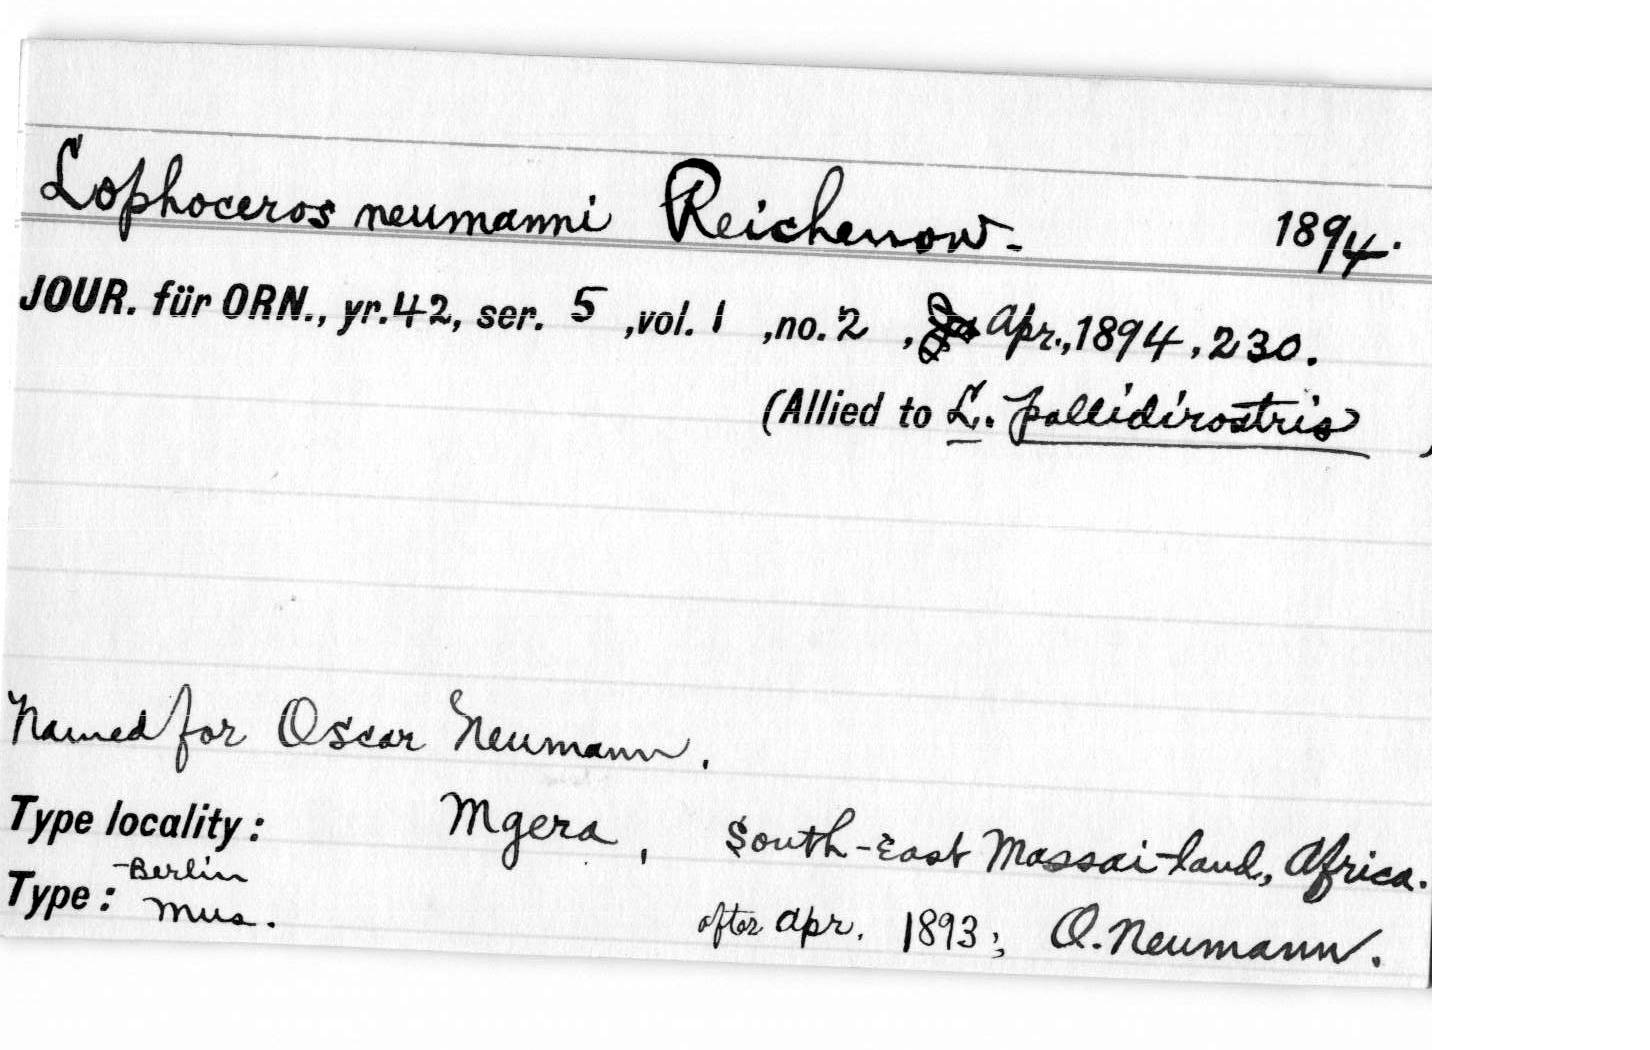 Lophoceros neumanni Reichenow - 1894.
JOUR. für ORN., yr. 42, ser. 5 , vol. 1 , no. 2 , Apr., 1894 , 230.
(Allied to L. pallidirostris )
Named for Oscar Neumann.
Type locality: Mgera, South-East Massai-land, Africa.
Type: Berlin Mus. after Apr. 1893; O. Neumann.